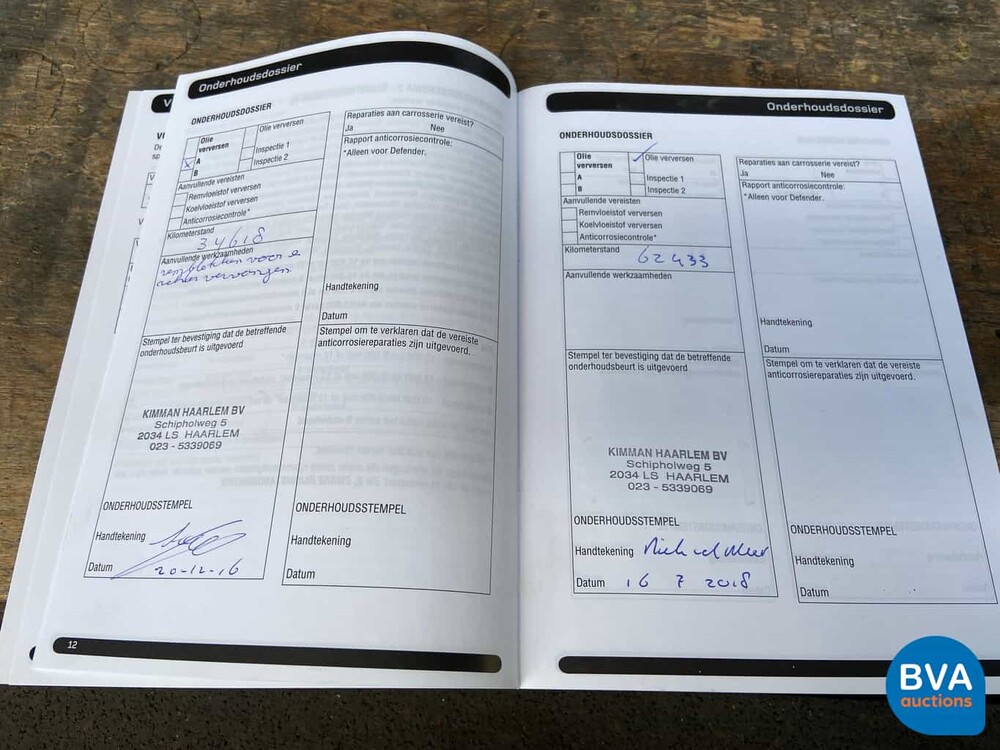 Onderhoudsdossier
ONDERHOUDSDOSSIER
Olie
verversen
Olie verversen
x A
Inspectie 1
B
Inspectie 2
Aanvullende vereisten
Remvloeistof verversen
Koelvloeistof verversen
Anticorrosiecontrole*
Kilometerstand
34618
Aanvullende werkzaamheden
remblokken voor e
achter vervangen
Stempel ter bevestiging dat de betreffende
onderhoudsbeurt is uitgevoerd
KIMMAN HAARLEM BV
Schipholweg 5
2034 LS HAARLEM
023 - 5339069
ONDERHOUDSSTEMPEL
Handtekening
Datum 20-12-16
Reparaties aan carrosserie vereist?
Ja Nee
Rapport anticorrosiecontrole:
*Alleen voor Defender.
Handtekening
Datum
Stempel om te verklaren dat de vereiste
anticorrosiereparaties zijn uitgevoerd.
ONDERHOUDSSTEMPEL
Handtekening
Datum
12
Onderhoudsdossier
ONDERHOUDSDOSSIER
Olie
verversen
Olie verversen
A
Inspectie 1
B
Inspectie 2
Aanvullende vereisten
Remvloeistof verversen
Koelvloeistof verversen
Anticorrosiecontrole*
Kilometerstand
62433
Aanvullende werkzaamheden
Stempel ter bevestiging dat de betreffende
onderhoudsbeurt is uitgevoerd
KIMMAN HAARLEM BV
Schipholweg 5
2034 LS HAARLEM
023 - 5339069
ONDERHOUDSSTEMPEL
Handtekening
Datum 16 7 2018
Reparaties aan carrosserie vereist?
Ja Nee
Rapport anticorrosiecontrole:
*Alleen voor Defender.
Handtekening
Datum
Stempel om te verklaren dat de vereiste
anticorrosiereparaties zijn uitgevoerd.
ONDERHOUDSSTEMPEL
Handtekening
Datum
BVA
auctions